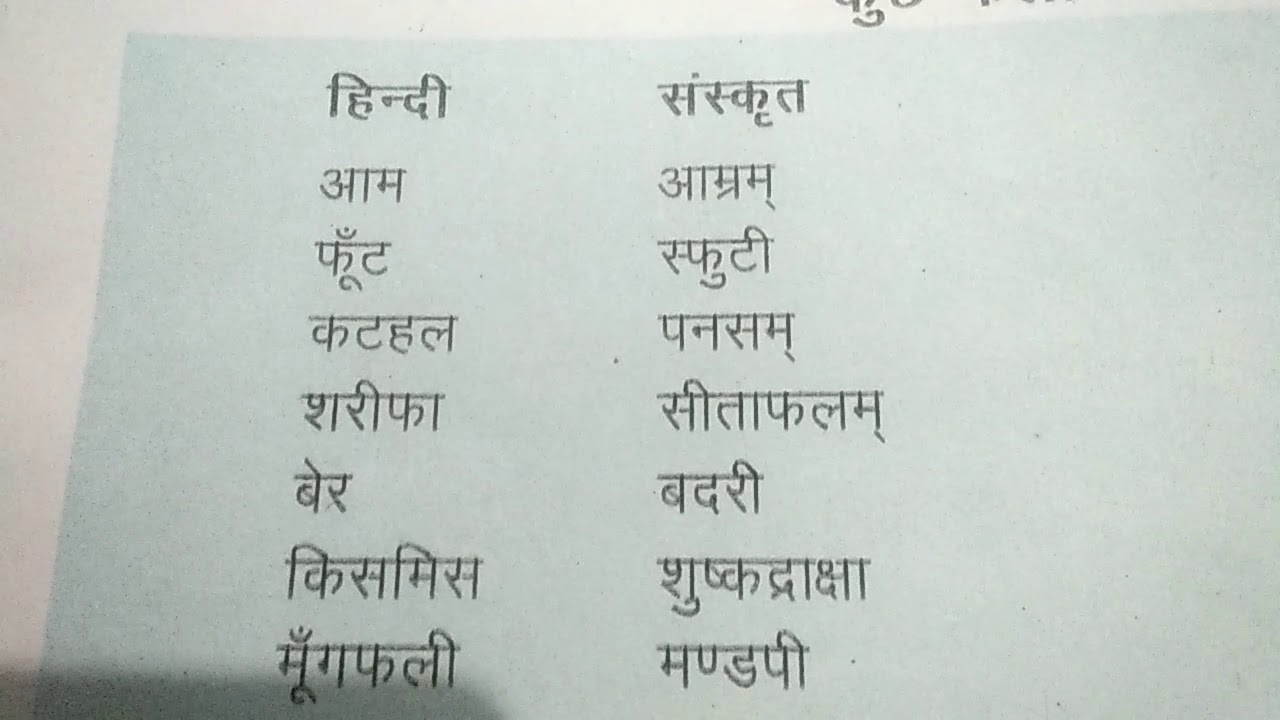 हिन्दी संस्कृत
आम आम्रम्
फूँट स्फुटी
कटहल पनसम्
शरीफा सीताफलम्
बेर बदरी
किसमिस शुष्कद्राक्षा
मूँगफली मण्डपी